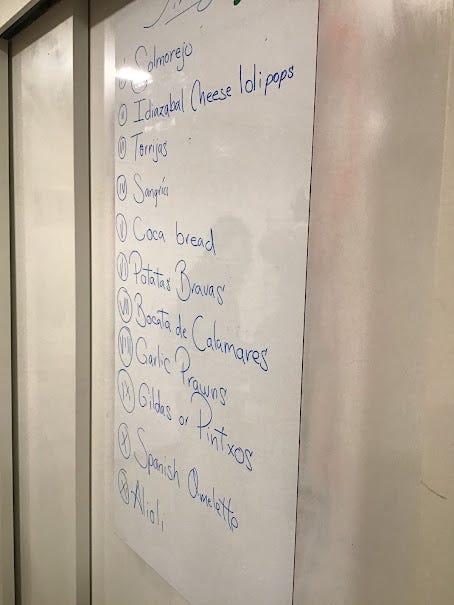 I Salmorejo
II Idiazabal Cheese lolipops
III Torrijas
IV Sangria
V Coca bread
VI Potatas Bravas
VII Bocata de Calamares
VIII Garlic Prawns
IX Gildas or Pintxos
X Spanish Omelette
XI Alioli